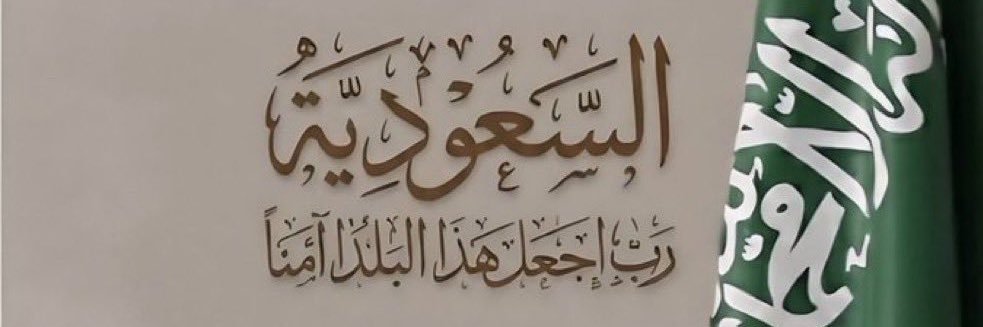 السَّعُودِيَّةُ
رَبِّ إجَعَل هَذَا البَلَدَا آمَنَاً